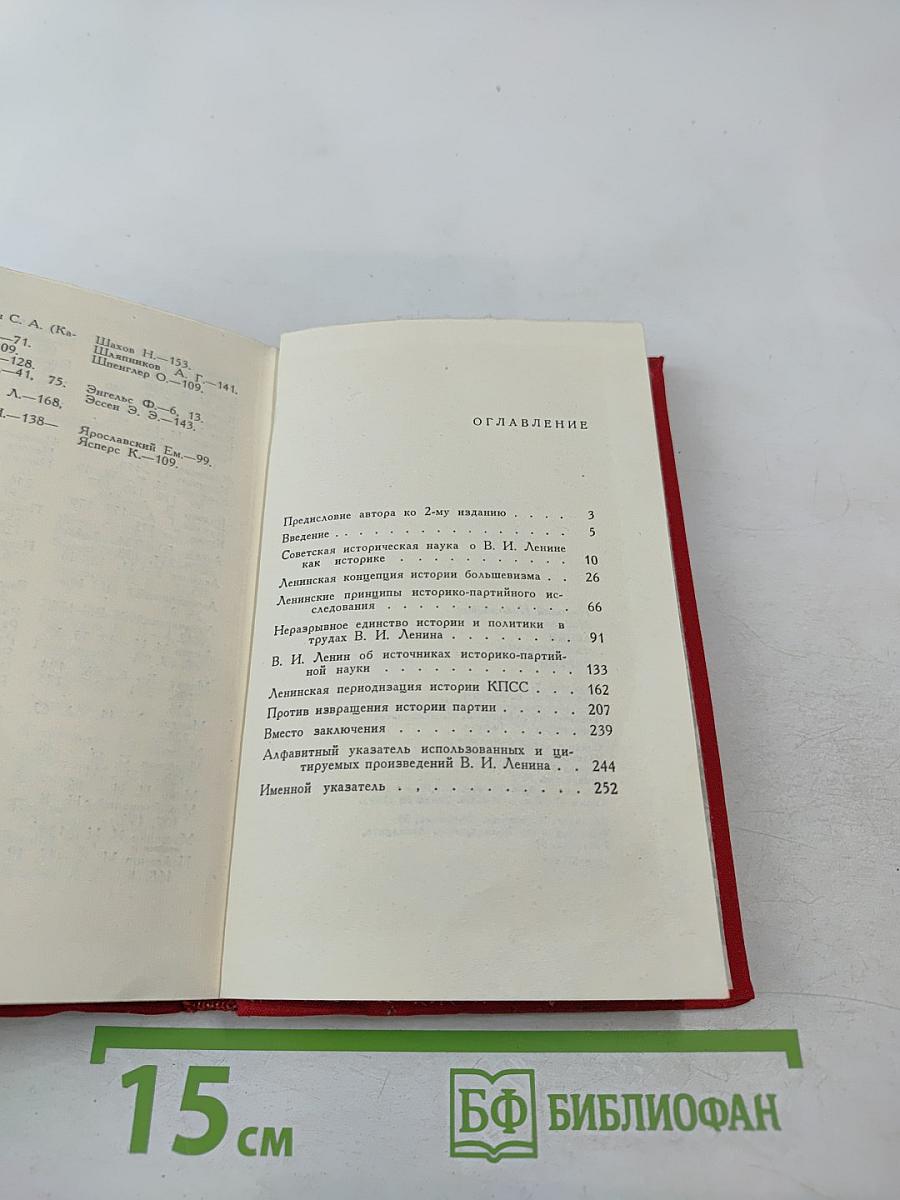 С. А. (Ка-
—71.
—128.
—41, 75.
Л.—168,
—138—
Шахов Н.—153.
Шляпников А. Г.—141.
Шпенглер О.—109.
Энгельс Ф.—6, 13.
Эссен Э. Э.—143.
Ярославский Ем.—99.
Ясперс К.—109.
ОГЛАВЛЕНИЕ
Предисловие автора ко 2-му изданию . . . . 3
Введение . . . . . . . . . . . . . . 5
Советская историческая наука о В. И. Ленине
как историке . . . . . . . . . . 10
Ленинская концепция истории большевизма . . 26
Ленинские принципы историко-партийного ис-
следования . . . . . . . . . . . 66
Неразрывное единство истории и политики в
трудах В. И. Ленина . . . . . . . . 91
В. И. Ленин об источниках историко-партий-
ной науки . . . . . . . . . . . 133
Ленинская периодизация истории КПСС . . . 162
Против извращения истории партии . . . . . 207
Вместо заключения . . . . . . . . . . . 239
Алфавитный указатель использованных и ци-
тируемых произведений В. И. Ленина . . 244
Именной указатель . . . . . . . . . . . 252
15 см
БФ БИБЛИОФАН